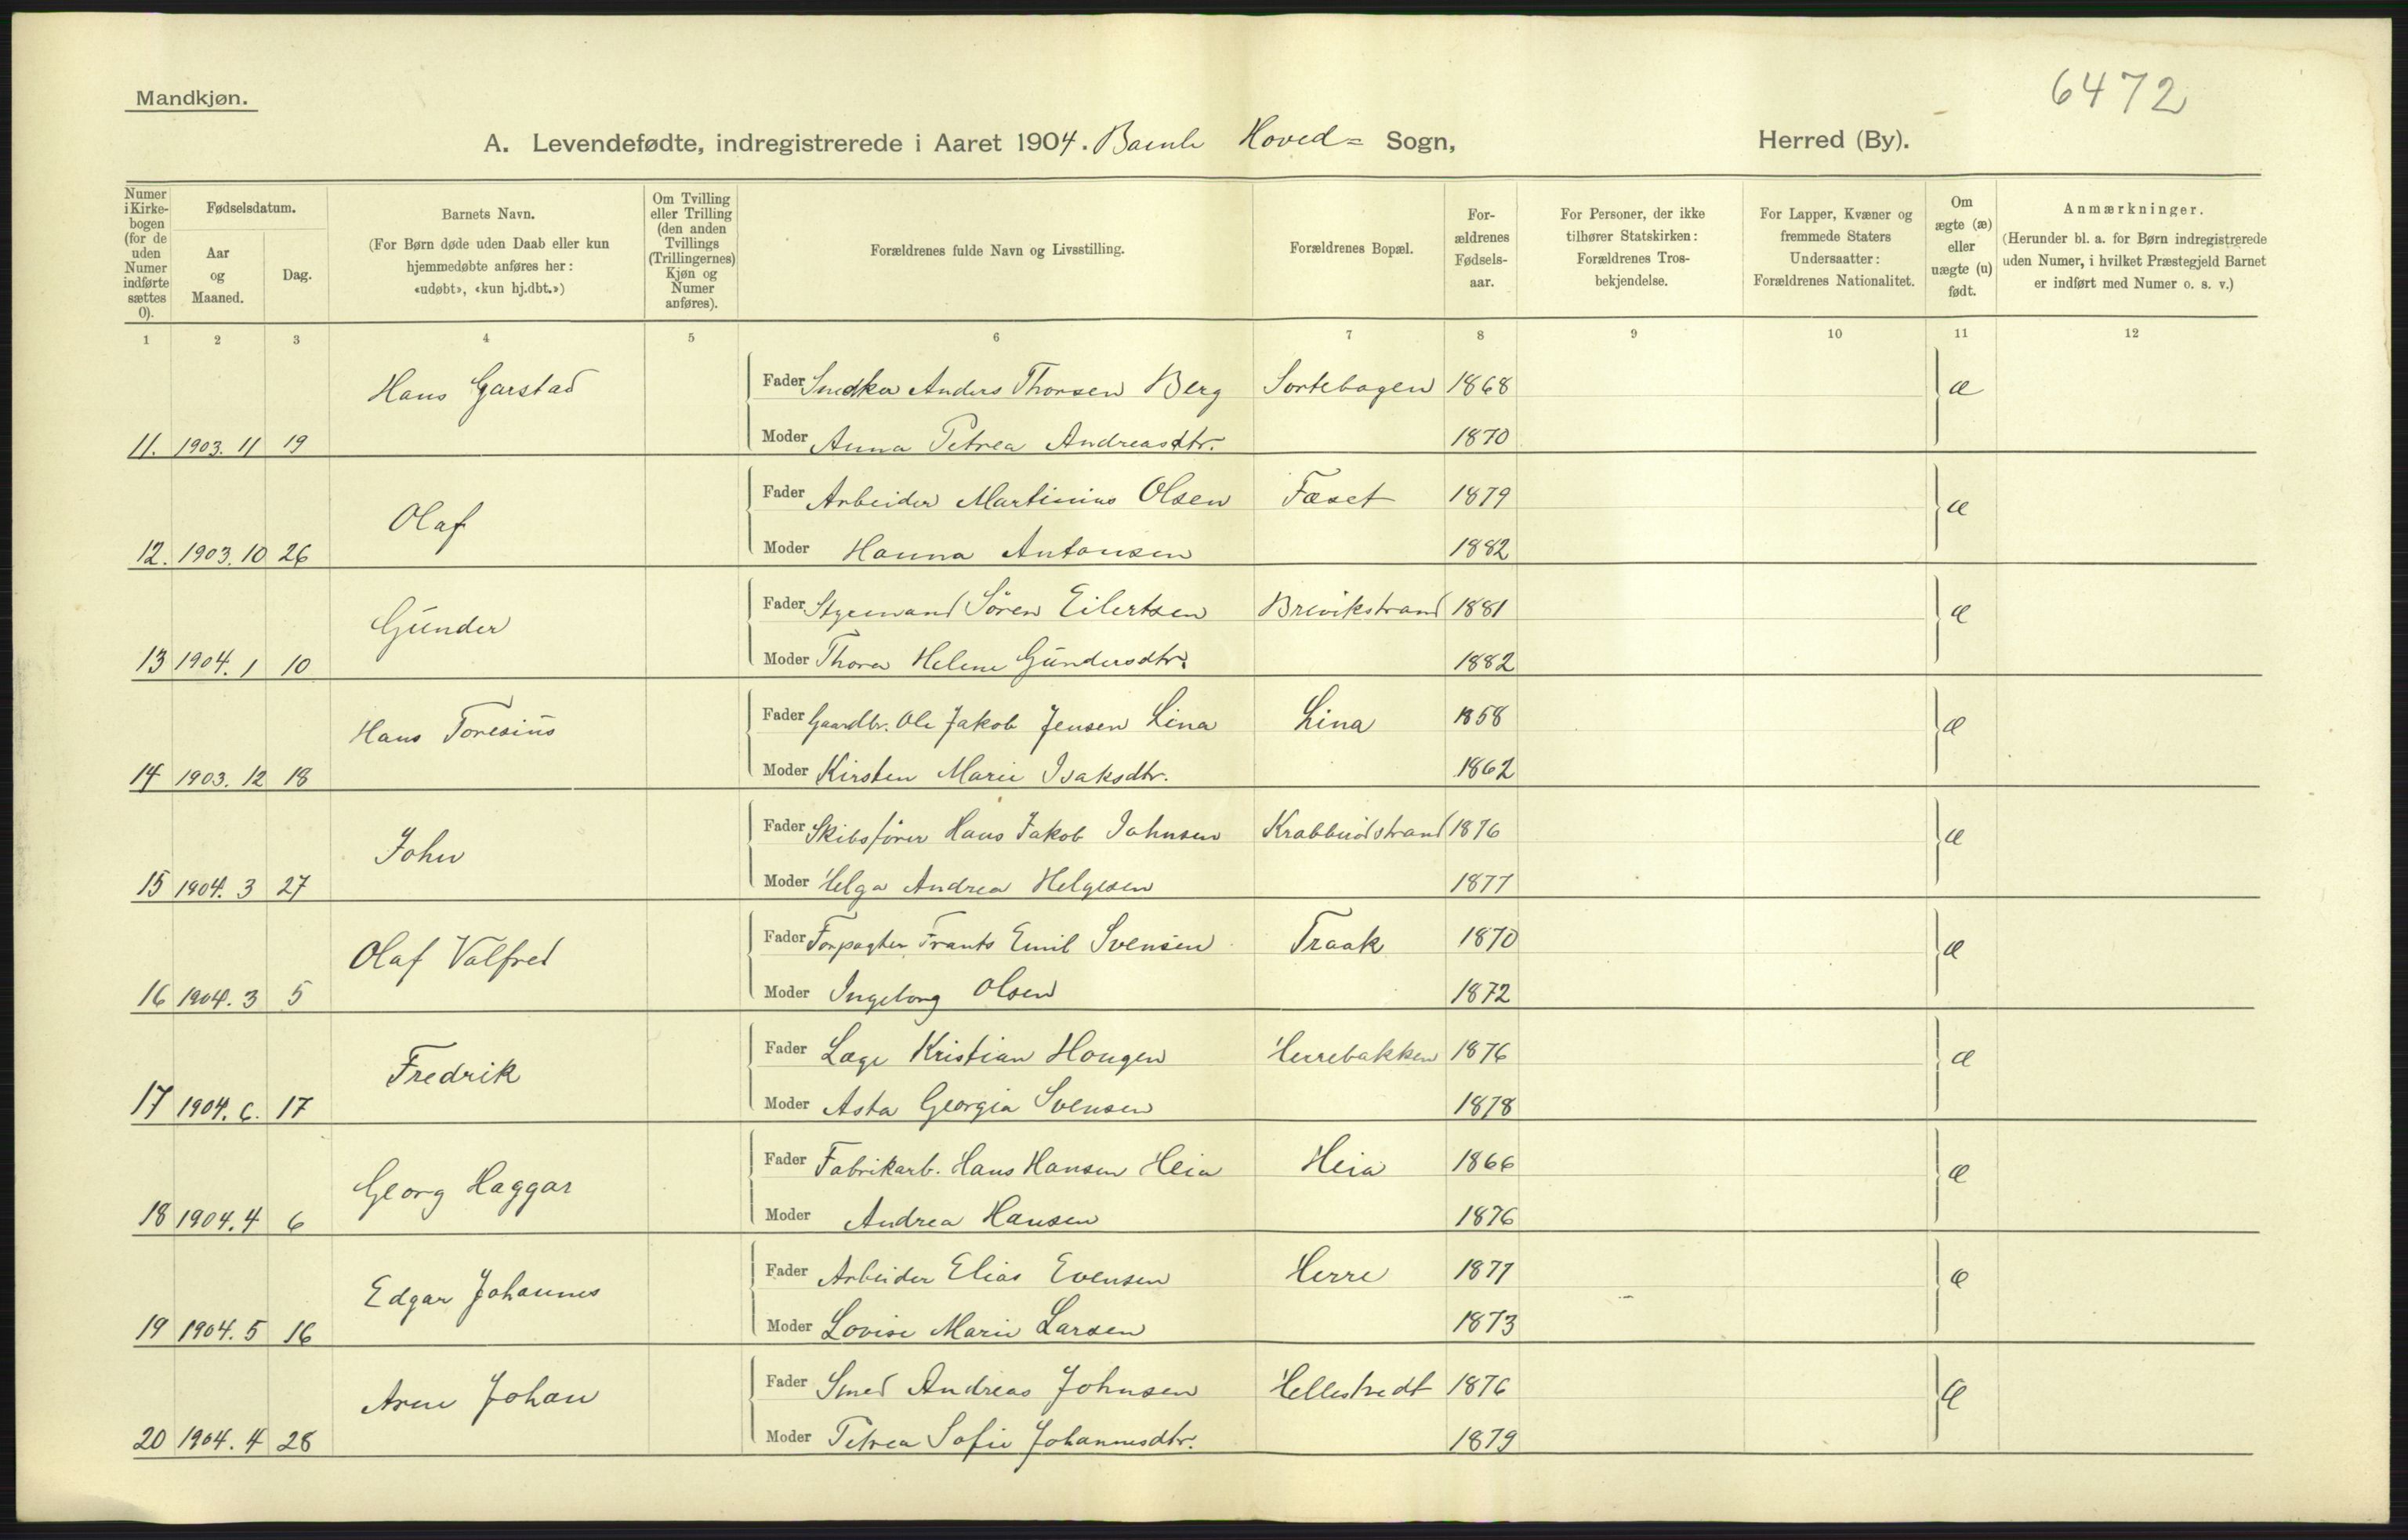 6472
Mandkjøn.
A. Levendefødte, indregistrerede i Aaret 1904. Bamle Hoved= Sogn, Herred (By).
Numer i Kirkebogen (for de uden Numer indførte sættes 0).
Fødselsdatum.
Aar og Maaned.
Dag.
Barnets Navn.
(For Børn døde uden Daab eller kun hjemmedøbte anføres her: «udøbt», «kun hj.dbt.»)
Om Tvilling eller Trilling (den anden Tvillings (Trillingernes) Kjøn og Numer anføres).
Forældrenes fulde Navn og Livsstilling.
Forældrenes Bopæl.
Forældrenes Fødselsaar.
For Personer, der ikke tilhører Statskirken: Forældrenes Trosbekjendelse.
For Lapper, Kvæner og fremmede Staters Undersaatter: Forældrenes Nationalitet.
Om ægte (æ) eller uægte (u) født.
Anmærkninger.
(Herunder bl. a. for Børn indregistrerede uden Numer, i hvilket Præstegjeld Barnet er indført med Numer o. s. v.)
1 2 3 4 5 6 7 8 9 10 11 12
Hans Garstad Fader Snedker Anders Thorsen Berg Sortebogen 1868 æ
11. 1903. 11 19 Moder Anna Petrea Andreasdtr. 1870
Olaf Fader Arbeider Martinius Olsen Faset 1879 æ
12. 1903. 10 26 Moder Hanna Antonsen 1882
Gunder Fader Styrmand Søren Eilertsen Brevikstrand 1881 æ
13 1904. 1 10 Moder Thora Helene Gundersdtr. 1882
Hans Toresius Fader Gaardbr. Ole Jakob Jensen Lina Lina 1858 æ
14 1903. 12 18 Moder Kirsten Marie Isaksdtr. 1862
John Fader Skibsfører Hans Jakob Johnsen Krabberødstrand 1876 æ
15 1904. 3 27 Moder Helga Andrea Helgesen 1877
Olaf Valfred Fader Forpagter Frants Emil Svensen Traak 1870 æ
16 1904. 3 5 Moder Ingeborg Olsen 1872
Fredrik Fader Læge Kristian Hougen Herrebakken 1876 æ
17 1904. 6. 17 Moder Asta Georgia Svensen 1878
Georg Haggar Fader Fabrikarb. Hans Hansen Heia Heia 1866 æ
18 1904. 4 6 Moder Andrea Hansen 1876
Edgar Johannes Fader Arbeider Elias Evensen Herre 1877 æ
19 1904. 5 16 Moder Lovise Marie Larsen 1873
Arne Johan Fader Smed Andreas Johnsen Hellestvedt 1876 æ
20 1904. 4 28 Moder Petrea Sofie Johannesdtr. 1879